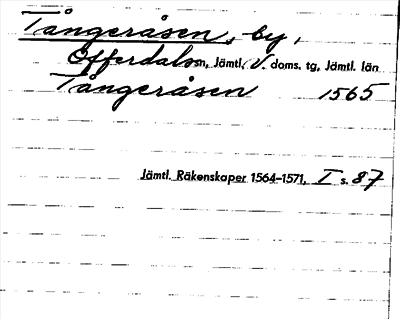 Tångeråsen, by,
Offerdals sn, Jämtl. V. doms. tg, Jämtl. län
Tångeråsen 1565
Jämtl. Räkenskaper 1564-1571, I s. 87